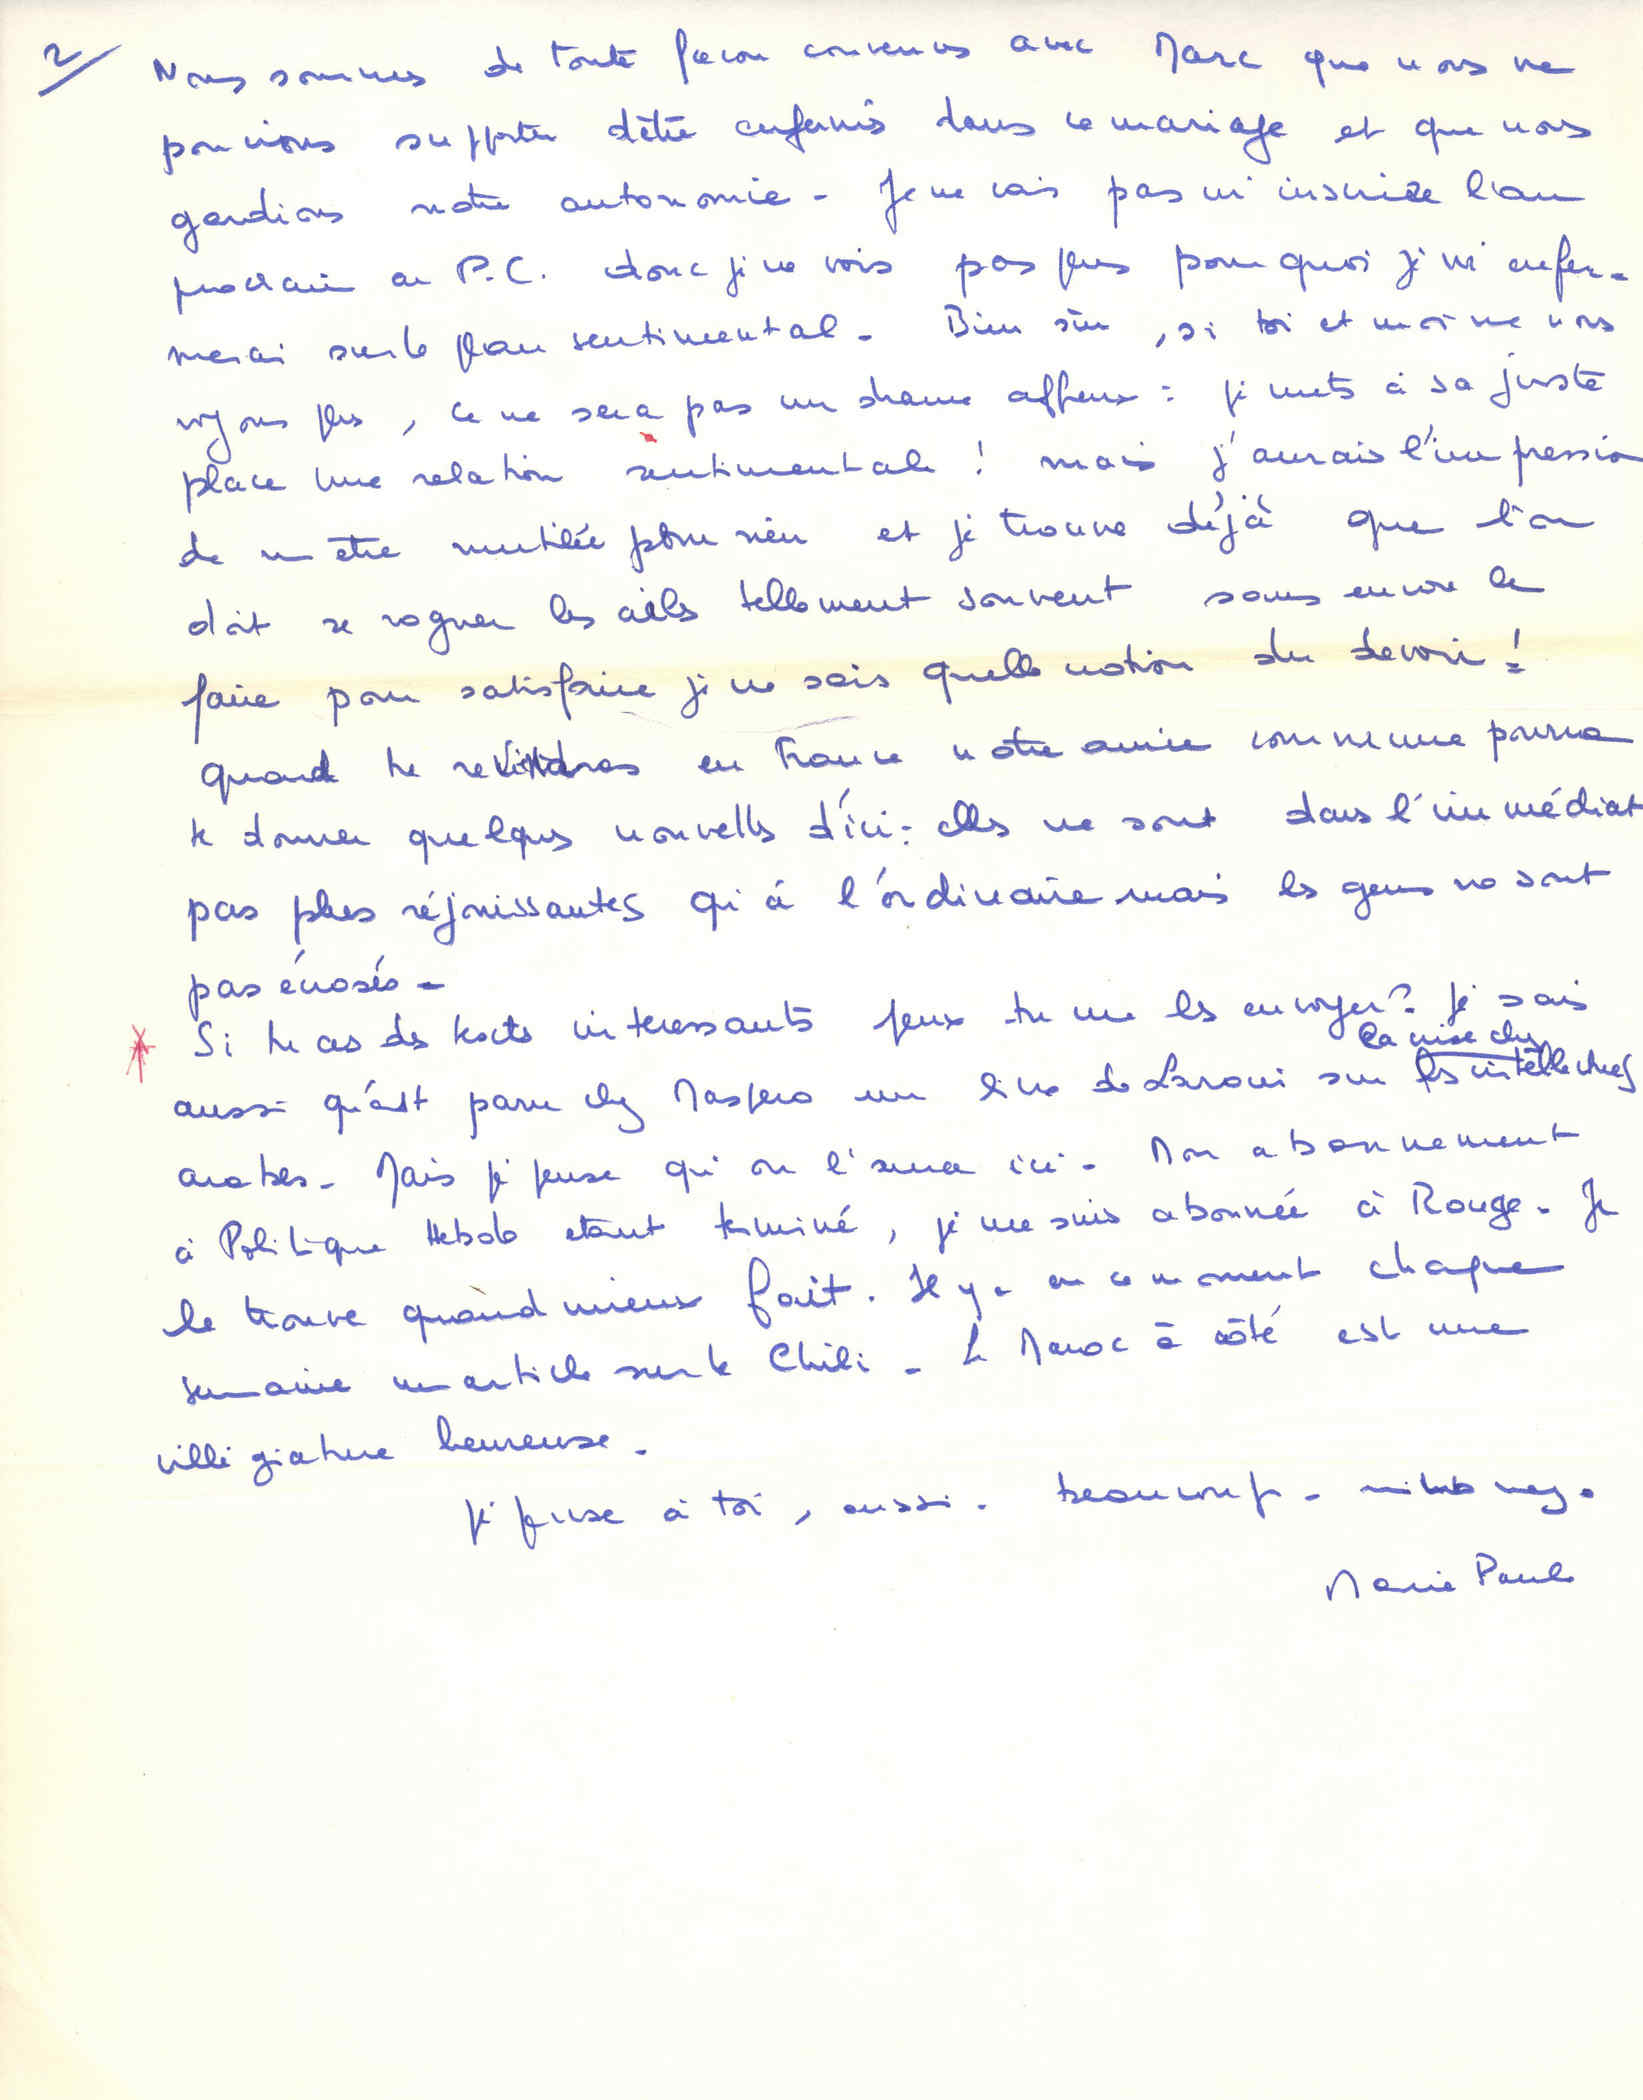 2/
Nous sommes de toute façon convenus avec Marc que nous ne
pouvions supporter d'être enfermés dans ce mariage et que nous
gardions notre autonomie - Je ne vais pas m'inscrire l'an
prochain au P.C. donc je ne vois pas plus pourquoi je m'enfer-
merai sur le plan sentimental - Bien sûr, si toi et moi ne nous
voyons plus, ce ne sera pas un drame affreux : je mets à sa juste
place une relation sentimentale ! mais j'aurais l'impression
de m'être mutilée pour rien et je trouve déjà que l'on
doit se rogner les ailes tellement souvent sans encore le
faire pour satisfaire je ne sais quelle notion du devoir !
Quand tu reviendras en France notre amie commune pourra
te donner quelques nouvelles d'ici : elles ne sont dans l'immédiat
pas plus réjouissantes qu'à l'ordinaire mais les gens ne sont
pas écrasés -
* Si tu as des textes intéressants peux-tu me les envoyer ? Je sais
la crise des
aussi qu'est paru chez Maspero un livre de Laroui sur les intellectuels
arabes - Mais je pense qu'on l'aura ici - Mon abonnement
à Politique Hebdo étant terminé, je me suis abonnée à Rouge - Je
le trouve quand mieux fait. Il y a en ce moment chaque
semaine un article sur le Chili - Le Maroc à côté est une
villégiature heureuse -
Je pense à toi, aussi - beaucoup -
Marie Paule